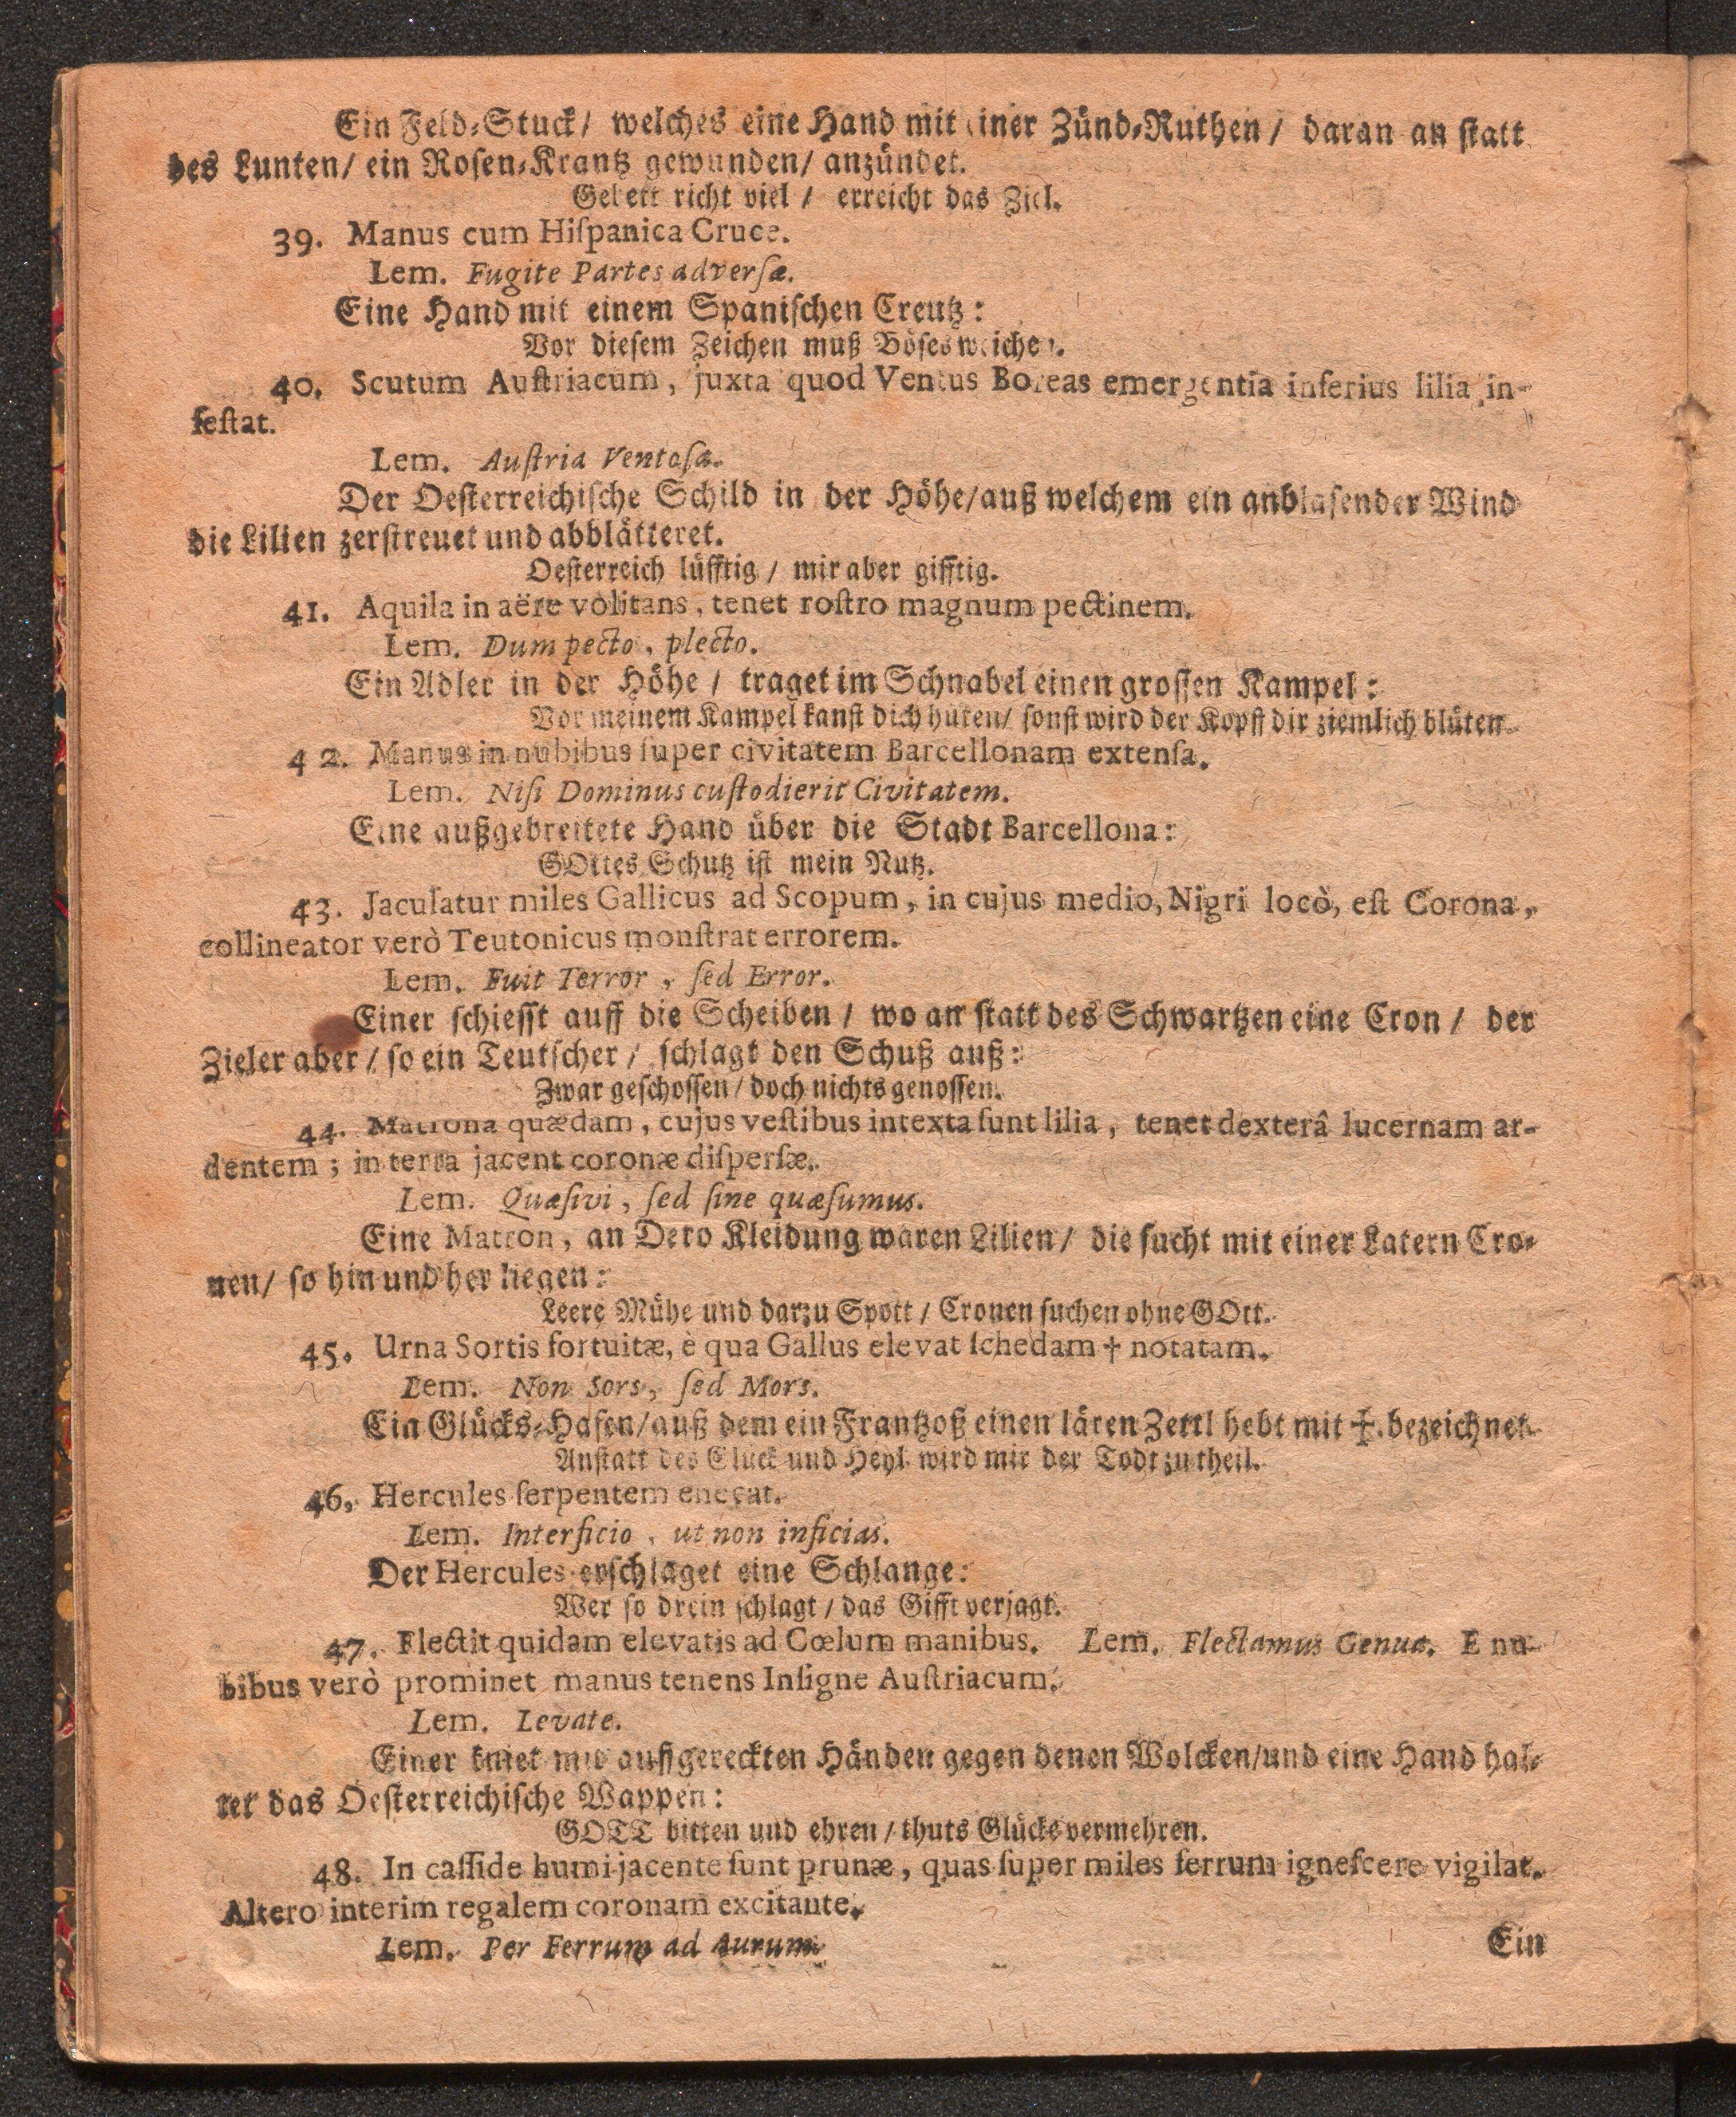 Ein Feld-Stuck/ welches eine Hand mit einer Zünd-Ruthen/ daran an statt
des Lunten/ ein Rosen-Krantz gewunden/ anzündet.
Gebett richt viel / erreicht das Ziel.
39. Manus cum Hiſpanica Cruce.
Lem. Fugite Partes adverſæ.
Eine Hand mit einem Spaniſchen Creutz:
Vor dieſem Zeichen muß Böſes weichen.
40. Scutum Auſtriacum, juxta quod Ventus Boreas emergentia inferius lilia in-
feſtat.
Lem. Auſtria Ventoſa.
Der Oeſterreichiſche Schild in der Höhe/auß welchem ein anblaſender Wind
die Lilien zerſtreuet und abblätteret.
Oeſterreich lüfftig / mir aber gifftig.
41. Aquila in aëre volitans, tenet roſtro magnum pectinem.
Lem. Dum pecto, plecto.
Ein Adler in der Höhe / traget im Schnabel einen groſſen Kampel:
Vor meinem Kampel kanſt dich hüten/ ſonſt wird der Kopff dir ziemlich blüten.
42. Manus in nubibus ſuper civitatem Barcellonam extenſa.
Lem. Niſi Dominus cuſtodierit Civitatem.
Eine außgebreitete Hand über die Stadt Barcellona:
GOttes Schutz iſt mein Nutz.
43. Jaculatur miles Gallicus ad Scopum, in cujus medio, Nigri locò, eſt Corona,
collineator verò Teutonicus monſtrat errorem.
Lem. Fuit Terror, ſed Error.
Einer ſchieſſt auff die Scheiben / wo an ſtatt des Schwartzen eine Cron / der
Zieler aber / ſo ein Teutſcher / ſchlagt den Schuß auß:
Zwar geſchoſſen / doch nichts genoſſen.
44. Matrona quædam, cujus veſtibus intexta ſunt lilia, tenet dexterâ lucernam ar-
dentem; in terra jacent coronæ diſperſæ.
Lem. Quæſivi, ſed ſine quæſumus.
Eine Matron, an Dero Kleidung waren Lilien/ die ſucht mit einer Latern Cro-
nen/ ſo hin und her liegen:
Leere Mühe und darzu Spott / Cronen ſuchen ohne GOtt.
45. Urna Sortis fortuitæ, è qua Gallus elevat ſchedam † notatam.
Lem. Non Sors, ſed Mors.
Ein Glücks-Hafen/auß dem ein Frantzoß einen lären Zettl hebt mit †. bezeichnet.
Anſtatt des Glück und Heyl wird mir der Todt zu theil.
46. Hercules ſerpentem enecat.
Lem. Interficio, ut non inficias.
Der Hercules erſchlaget eine Schlange:
Wer ſo drein ſchlagt / das Gifft verjagt.
47. Flectit quidam elevatis ad Cœlum manibus. Lem. Flectamus Genua. E nu-
bibus verò prominet manus tenens Inſigne Auſtriacum.
Lem. Levate.
Einer kniet mit auffgereckten Händen gegen denen Wolcken/und eine Hand hal-
tet das Oeſterreichiſche Wappen:
GOTT bitten und ehren / thuts Glücks vermehren.
48. In caſſide humi jacente ſunt prunæ, quas ſuper miles ferrum igneſcere vigilat.
Altero interim regalem coronam excitante.
Lem. Per Ferrum ad Aurum.
Ein